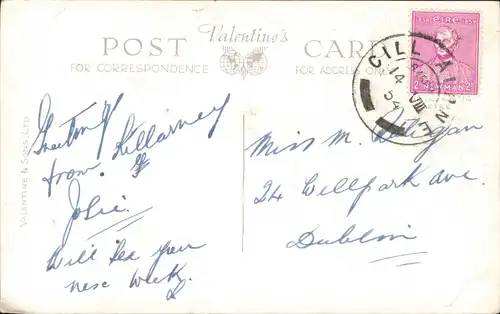 POST Valentine's CARD
FOR CORRESPONDENCE FOR ADDRESS ONLY
VALENTINE & SONS, LTD
CILL AIRNE
14 VIII 54
1854 EIRE 1954
2 NEWMAN 2
Greetings
from Killarney
Josie.
Will see you
next week.
Miss M. Deligan
24 Wellpark Ave.
Dublin